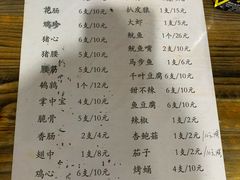 花肠 6支/10元
鸡珍 6支/10元
猪心 6支/10元
猪腰 6支/10元
腰筋 6支/10元
鹌鹑 1个/12元
掌中宝 6支/10元
脆骨 5支/10元
香肠 2支/4元
翅中 1支/8元
鸡心 6支/10元
扒皮狼 1支/15元
大虾 1支/5元
鱿鱼 1个/26元
鱿鱼嘴 2支/10元
马步鱼 1支/5元
千叶豆腐 6支/10元
鱼豆腐 6支/10元
甜不辣 6支/10元
辣椒 1支/2元
杏鲍菇 1支/2元
茄子 1支/2元
烤蛹 4支/10元